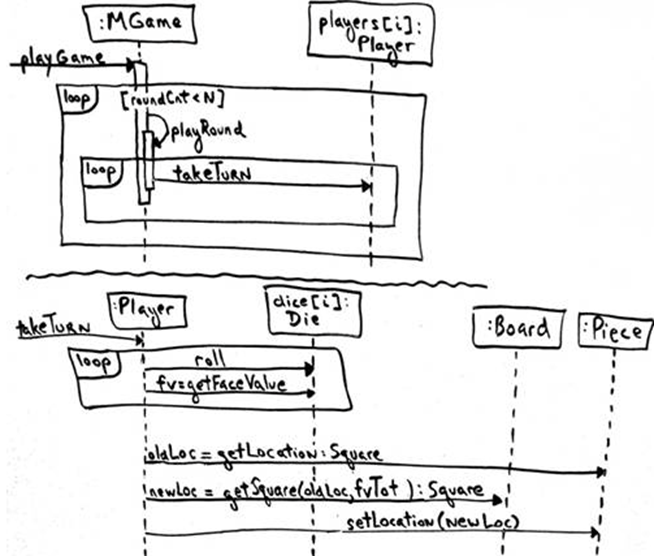 :MGame
players[i]:
Player
playGame
loop
[roundCnt < N]
playRound
loop
takeTURN
:Player
dice[i]:
Die
:Board
:Piece
takeTURN
loop
roll
fv=getFaceValue
oldLoc = getLocation: Square
newLoc = getSquare(oldLoc, fvTot) : Square
setLocation(newLoc)